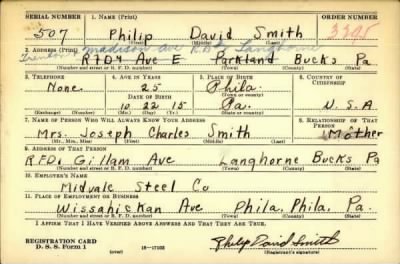 SERIAL NUMBER 1. NAME (Print) ORDER NUMBER
507 Philip David Smith 3395
(First) (Middle) (Last)
Trenton Madison ave R.D. Langhorne
2. ADDRESS (Print)
RFD4 Ave E Parkland Bucks Pa
(Number and street or R. F. D. number) (Town) (County) (State)
3. TELEPHONE 4. AGE IN YEARS 5. PLACE OF BIRTH 6. COUNTRY OF CITIZENSHIP
None. 25 Phila.
(Town or county)
DATE OF BIRTH
10 22 15 Pa. U.S.A
(Exchange) (Number) (Mo.) (Day) (Yr.) (State or country)
7. NAME OF PERSON WHO WILL ALWAYS KNOW YOUR ADDRESS 8. RELATIONSHIP OF THAT PERSON
Mrs. Joseph Charles Smith Mother
(Mr., Mrs., Miss) (First) (Middle) (Last)
9. ADDRESS OF THAT PERSON
R.F.D. Gillam Ave Langhorne Bucks Pa
(Number and street or R. F. D. number) (Town) (County) (State)
10. EMPLOYER'S NAME
Midvale Steel Co
11. PLACE OF EMPLOYMENT OR BUSINESS
Wissahickan Ave Phila, Phila. Pa.
(Number and street or R. F. D. number) (Town) (County) (State)
I AFFIRM THAT I HAVE VERIFIED ABOVE ANSWERS AND THAT THEY ARE TRUE.
REGISTRATION CARD
D. S. S. Form 1 (over) 16—17105 Philip David Smith
(Registrant's signature)